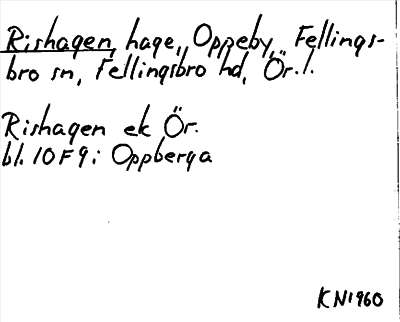 Rishagen, hage, Oppeby, Fellings-
bro sn, Fellingsbro hd, Ör. l.
Rishagen ek Ör.
bl. 10F9i Oppberga
KN1960